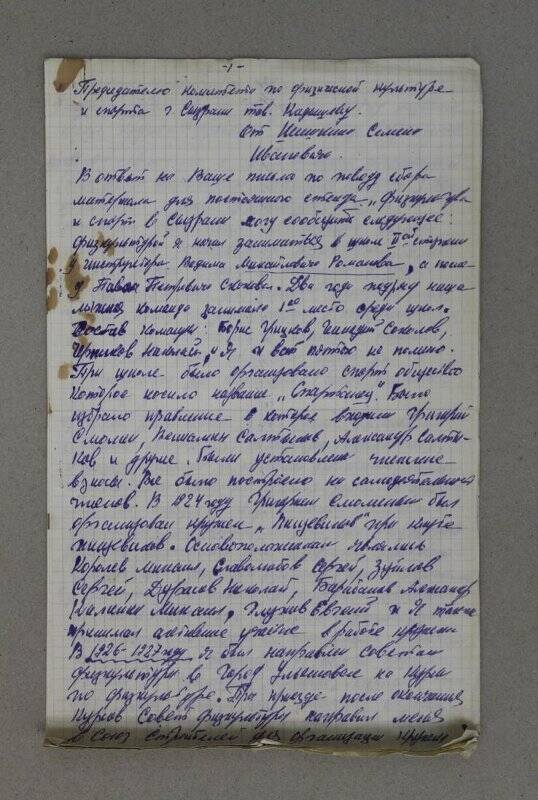 -1-
Председателю комитета по физической культуре
и спорта г Сызрани тов.
От Семена
Ивановича.
В ответ на Ваше письмо по поводу сбора
материала для постоянного стенда „Физкультура
и спорт в Сызрани могу сообщить следующее:
физкультурой я начал заниматься в школе II ой ступени
у инструктора Вадима Михайловича Романова, а после
у Павла Петровича. Два года подряд наша
лыжная команда занимала 1ое место среди школ.
Состав команды: Борис Грицков, Соколов,
Николай, и Я а вот пятого не помню.
При школе было организовано спорт общество
которое носило название „Спартанец". Было
избрано правление в которое входили Григорий
Смолин, Салтыков, Александр Салты-
ков и другие. Были установлены членские
взносы. Все было построено на самодеятельности
членов. В 1924 году Григорием Смолиным был
организован кружок „Пищевиков" при клубе
пищевиков. Основоположниками являлись
Королев Михаил, Сергей, Зуйков
Сергей, Николай, Александр
Калинин Михаил, Глухов Евгений и Я также
принимал активное участие в работе кружка
В 1926-1927 году Я был направлен советом
физкультуры в город Ульяновск на курсы
по физкультуре. По приезде после окончания
курсов Совет физкультуры направил меня
в союз строителей для организации кружка